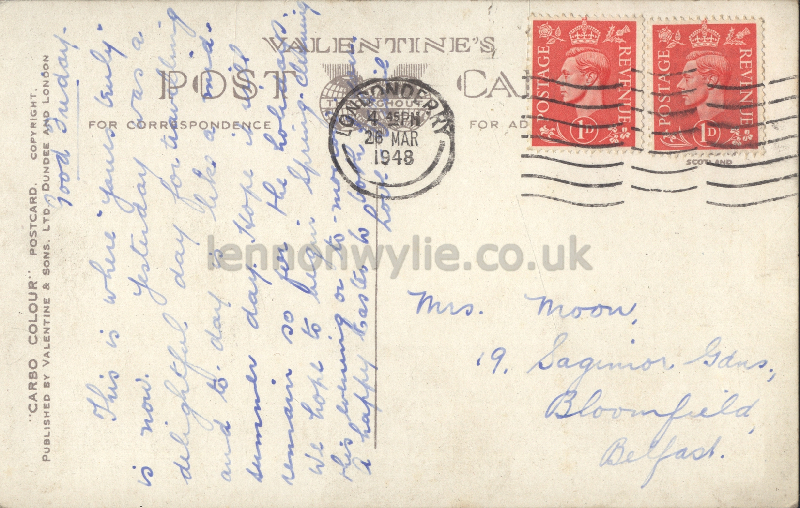 VALENTINE'S
POST CA
FOR CORRESPONDENCE
FOR AD
LONDONDERRY
4 45PM
26 MAR
1948
POSTAGE REVENUE
1D
POSTAGE REVENUE
1D
SCOTLAND
"CARBO COLOUR" POSTCARD. COPYRIGHT.
PUBLISHED BY VALENTINE & SONS. LTD. DUNDEE AND LONDON
Good Friday.
This is where "yours truly"
is now. Yesterday was a
delightful day for travelling
and to-day is like a mid-
summer day. Hope it will
remain so for the holidays.
We hope to begin Spring-cleaning
this evening or to-morrow.
a happy Easter to both
Mrs. Moon,
19, Sagimor Gdns,
Bloomfield,
Belfast.
lennonwylie.co.uk